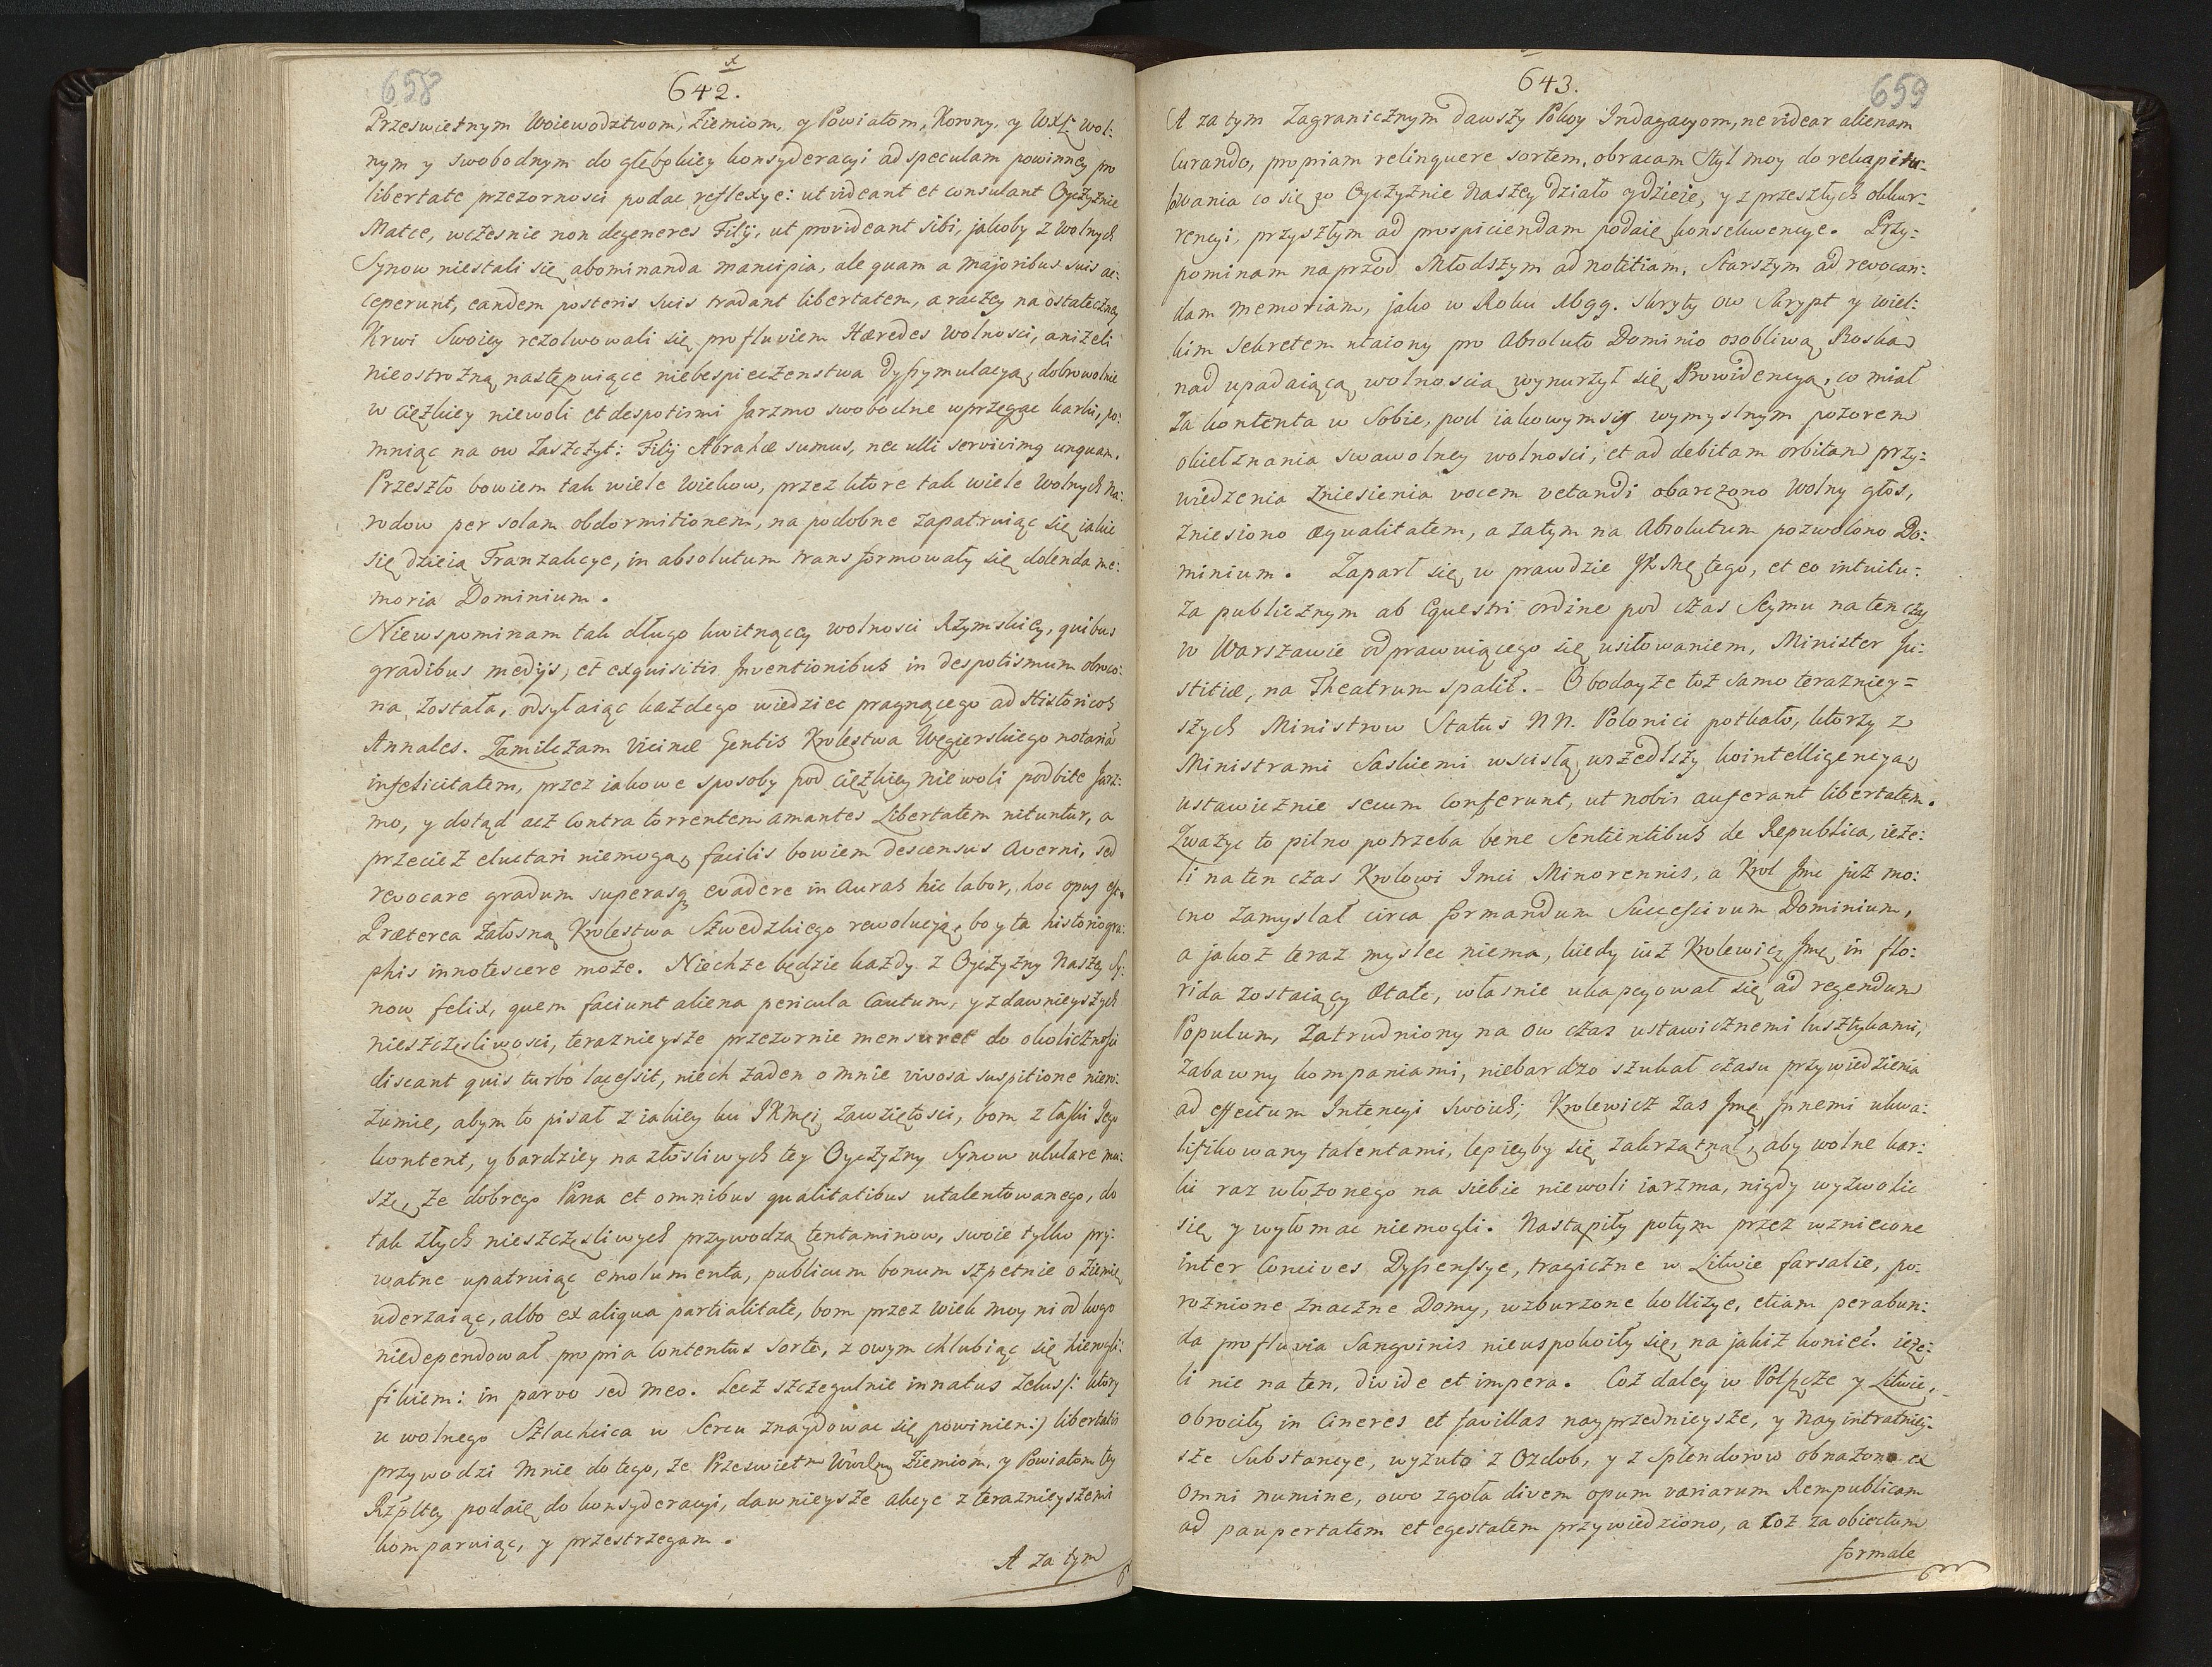 658
642.
Przeswietnym Woiewodztwom, Ziemiom, y Powiatom, Koronny, y WXL: wol:
nym y swobodnym do głębokiey konsyderacyi ad speculam powinney pro
libertate przezornosci podac reflexye: ut videant et consulant Oyczyznie
Matce, wczesnie non degeneres Filij, ut provideant sibi, jakoby z wolnych
Synow niestali się abominanda mancipia, ale quam a majoribus suis ac:
ceperunt, eandem posteris suis tradant libertatem, a raczey na ostateczney
Krwi Swoiey rezolwowali się profluviem Hæredes wolnosci, anizeli
nieostrozną następuiące niebespieczenstwa dyssymulacyą, dobrowolnie
w cięzkiey niewoli et despotismi Jarzmo swobodne wprzegac karki, po:
mniąc na ow Zaszczyt: Filij Abrahæ sumus, nec ulli servivimg unquam.
Przeszło bowiem tak wiele wiekow, przez ktore tak wiele wolnych na:
rodow per solam obdormitionem, na podobne zapatruiąc się, iakie
się dzieią Tranzakcye, in absolutum transformowały się dolenda me:
moria Dominium.
Niewspominam tak długo kwitnącey wolnosci Rzymskiey, quibus
gradibus medijs, et exquisitis Inventionibus in despotismum obroco:
na została, odsyłaiąc kazdego wiedziec pragnącego ad Historicos
Annales. Zamilczam vicinæ Gentis Krolestwa Węgierskiego notaria
infelicitatem, przez iakowe sposoby pod cięzkiey niewoli podbite Jarz:
mo, y dotąd acz contra torrentem amantes Libertatem nituntur, a
przeciez eluctari niemogą, facilis bowiem descensus Averni, sed
revocare gradum superasq evadere in Auras hic labor, hoc opus est.
Præterea załosną Krolestwa Szwedzkiego rewolucyją, bo y ta historiogra:
phis innotescere moze. Niechze będzie kazdy z Oyczyzny Naszey Sy:
now felix, quem faciunt aliena pericula Cautum, y z dawnieyszych
nieszczęsliwosci, teraznieysze przezornie mensuret do okolicznosci
discant quis turbo lacessit, niech zaden o mnie vivosa suspitione niero:
zumie, abym to pisał z iakiey ku JKMci zawziętosci, bom z łaski Jego
kontent, y bardziey na złosliwych tey Oyczyzny Synow ululare mu:
szę, ze dobrego Pana et omnibus qualitatibus utalentowanego, do
tak złych nieszczęsliwych przywodzą tentaminow, swoie tylko pry:
watne upatruiąc emolumenta, publicum bonum szpetnie o ziemię
uderzaiąc, albo ex aliqua partialitate, bom przez wiek moy ni od kogo
niedependował propria contentus sorte, z owym chlubiąc się hierogli:
fikiem: in parvo sed meo. Lecz szczegulnie innatus zelus /: ktory
u wolnego Szlachcica w Sercu znaydowac się powinien:) libertatis
przywodzi mnie do tego, ze Przeswietm Wdztwm Ziemiom, y Powiatom tey
Rzpltey podaię do konsyderacyi, dawnieysze akcye z teraznieyszemi
komparuiąc, y przestrzegam.
A za tym
643.
659
A za tym Zagranicznym dawszy Pokoy Indagacyom, ne videar alienam
curando, propriam relinquere sortem, obracam Styl moy do rekapitu-
lowania co się po Oyczyznie Naszey działo y dzieie, y z przeszłych okkur-
rencyi, przyszłym ad prospiciendam podaię konsekwencye. Przy=
pominam naprzod Młodszym ad notitiam, Starszym ad revocan:
dam memoriam, jako w Roku 1699. skryty ow Skrypt y wiel:
kim Sekretem utaiony pro Absoluto Dominio osobliwą Boską
nad upadaiącą wolnoscią wynurzył się Prowidencyą, co miał
za kontenta w Sobie, pod iakowymsiś wymyslnym pozorem
okiełznania swawolney wolnosci, et ad debitam orbitam przy=
wiedzenia Zniesienia vocem vetandi obarczono wolny głos,
zniesiono æqualitatem, a zatym na Absolutum pozwolono Do:
minium. Zaparł się w prawdzie JKMć tego, et eo intuitu:
za publicznym ab Equestri ordine pod czas Seymu natenczas
w Warszawie odprawuiącego się usiłowaniem, Minister Ju:
stitiæ, na Theatrum spalił. - O bodayze toz samo terazniey=
szych Ministrow Status NN. Polonici potkało, ktorzy z
Ministrami Saskiemi w scisłą wszedłszy kointelligencyą
ustawicznie secum conferunt, ut nobis auferant libertatem.
Zwazyc to pilno potrzeba bene Sentientibus de Republica, ieze:
li na ten czas Krolowi Imci Minorennis, a Krol Jmc juz mo:
cno zamyslał circa formandum Successivum Dominium,
a jakoz teraz myslec niema, kiedy iuz Krolewicz Jmc in flo:
rida zostaiący ætate, własnie ukapcyował się ad regendum
Populum, Zatrudniony na ow czas ustawicznemi kusztykami,
zabawny kompaniami, niebardzo szukał czasu przywiedzienia
ad effectum Intencyi Swoich; Krolewicz zas Jmc Innemi ukwa:
lifikowany talentami, lepieyby się zakrzątnął, aby wolne kar:
ki raz włozonego na siebie niewoli iarzma, nigdy wyzwolic
się y wyłomac niemogli. Nastąpiły potym przez wzniecone
inter Concives Dyssenssye, tragiczne w Litwie farsalie, po-
roznione znaczne Domy, wzburzone kollizye, etiam perabun:
da profluvia Sangvinis nieuspokoiły się, na jakiz koniec. ieze:
li nie na ten, divide et impera. Coz daley w Polszcze y Litwie,
obrociły in Cineres et favillas nayprzednieysze, y nayintratniey-
sze Substancye, wyzuto z Ozdob, y z Splendorow obnazono ex
omni numine, owo zgoła divem opum variarum Rempublicam
ad paupertatem et egestatem przywiedziono, a toz za obiectum
formale